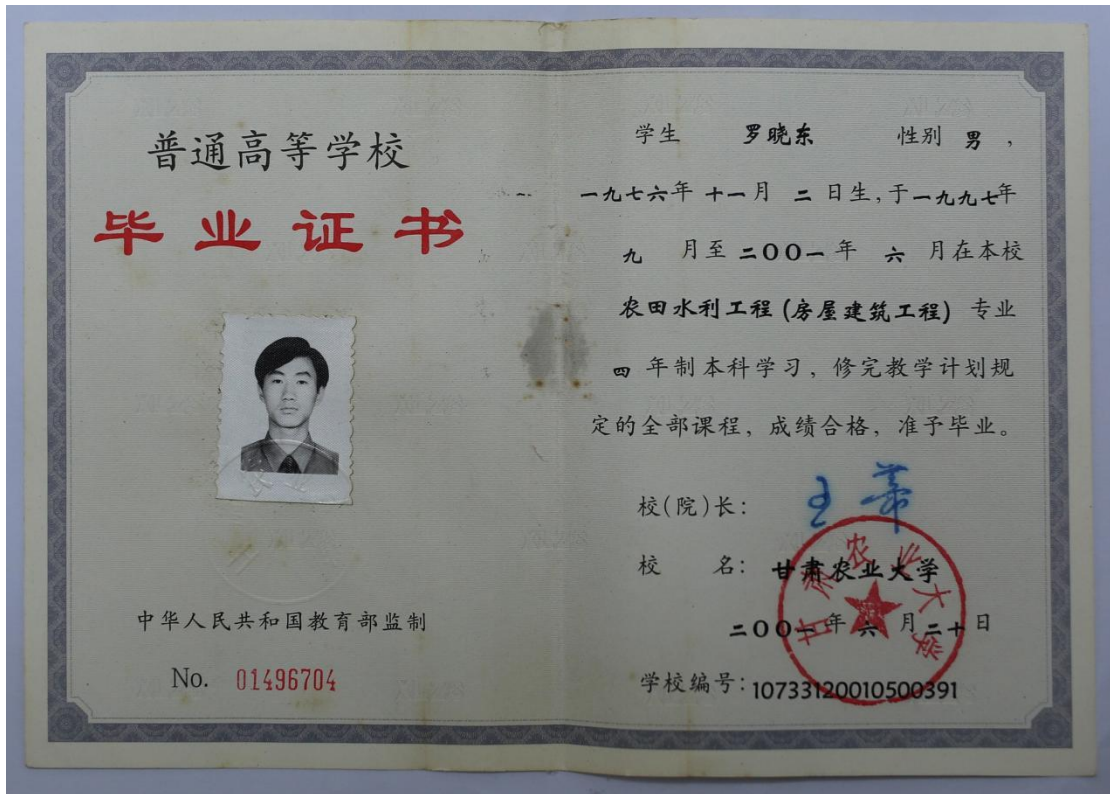 普通高等学校
毕业证书
中华人民共和国教育部监制
No. 01496704
学生 罗晓东 性别 男，
一九七六年 十一月 二 日生，于一九九七年
九 月至 二〇〇一 年 六 月在本校
农田水利工程(房屋建筑工程) 专业
四 年制本科学习，修完教学计划规
定的全部课程，成绩合格，准予毕业。
校(院)长：
校 名：甘肃农业大学
甘肃农业大学
二〇〇一年 六 月二十日
学校编号：10733120010500391